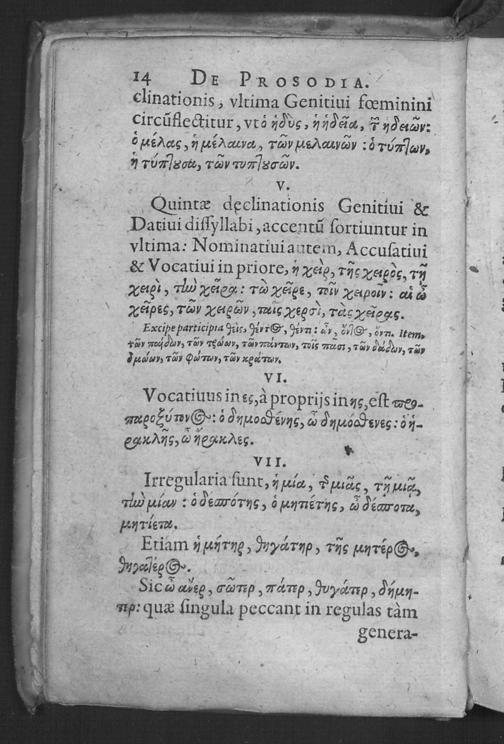 14 DE PROSODIA.
clinationis, vltima Genitiui fœminini
circũflectitur, vt ὁ ἡδὺς, ἡ ἡδεῖα, τ̃ ἡδειῶν:
ὁ μέλας, ἡ μέλαινα, τῶν μελαινῶν: ὁ τύπτων,
ἡ τυπτουσα, τῶν τυπτουσῶν.
V.
Quintæ dęclinationis Genitiui &
Datiui dissyllabi, accentũ sortiuntur in
vltima: Nominatiui autem, Accusatiui
& Vocatiui in priore, ἡ χεὶρ, τῆς χειρὸς, τῇ
χειρὶ, τὴν χεῖρα: τὼ χεῖρε, τοῖν χειροῖν: αἱ ὦ
χεῖρες, τῶν χειρῶν, ταῖς χερσὶ, τὰς χεῖρας.
Excipe participia θεὶς, θέντος, θέντι: ὢν, ὄντος, ὄντι. Item,
τῶν παίδων, τῶν τρώων, τῶν πάντων, τοῖς πᾶσι, τῶν δᾴδων, τῶν
δμώων, τῶν φώτων, τῶν κράτων.
VI.
Vocatiuus in ες, à proprijs in ης, est προ-
παροξύτονος: ὁ δημοσθένης, ὦ δημόσθενες: ὁ ἡ-
ρακλῆς, ὦ ἥρακλες.
VII.
Irregularia sunt, ἡ μία, τ̃ μιᾶς, τῇ μιᾷ,
τὴν μίαν: ὁ δεσπότης, ὁ μητιέτης, ὦ δέσποτα,
μητίετα.
Etiam ἡ μήτηρ, θυγάτηρ, τῆς μητέρος,
θυγατέρος.
Sic ὦ ἄνερ, σῶτερ, πάτερ, θυγάτερ, δήμη-
τερ: quæ singula peccant in regulas tàm
genera-